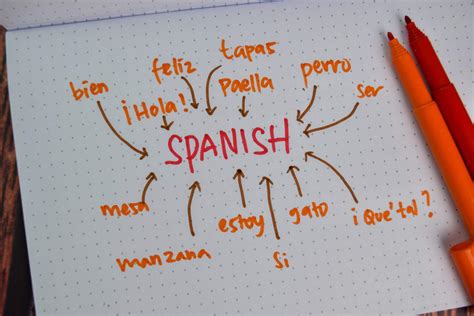 tapas
feliz
perro
bien
paella
ser
¡Hola!
SPANISH
mesa
gato
estoy
¡ Que'tal?
manzana
Si